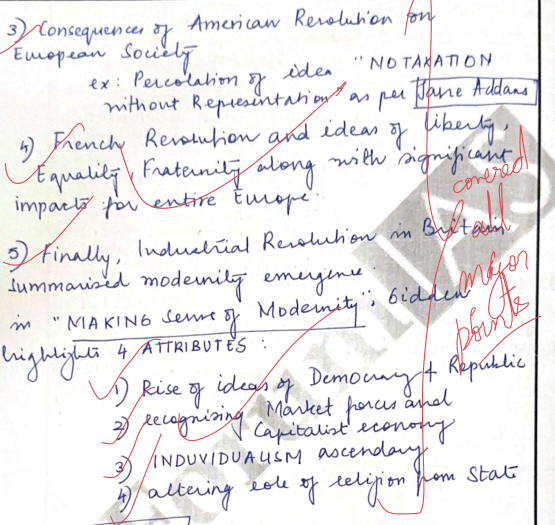 3) Consequences of American Revolution on
European Society
ex: Percolation of idea "NO TAXATION
without Representation" as per Jane Addams
4) French Revolution and ideas of liberty,
Equality, Fraternity along with significant
impacts for entire Europe.
5) Finally, Industrial Revolution in Britain
summarised modernity emergence.
in "MAKING sense of Modernity", Giddens
highlights 4 ATTRIBUTES :
1) Rise of ideas of Democracy & Republic
2) recognising Market forces and
Capitalist economy
3) INDUVIDUALISM ascendary
4) altering role of religion from State
covered
all
major
points
IAS